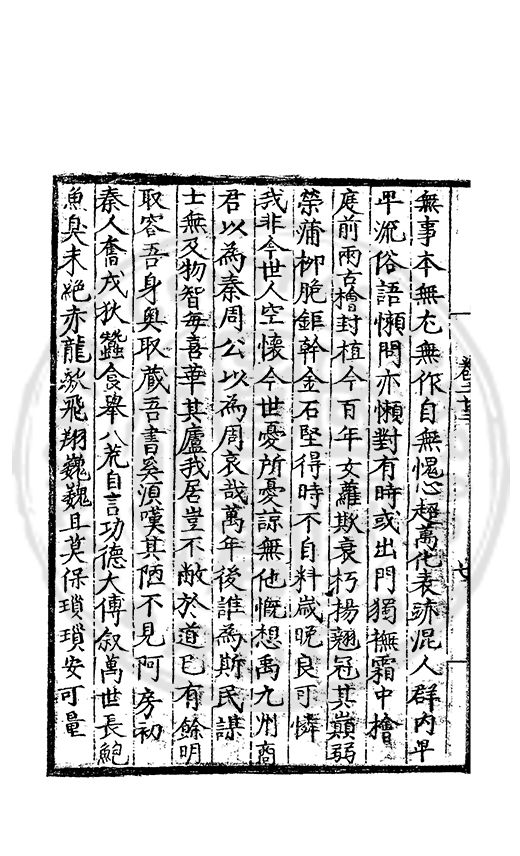 無事本無尤無作自無愧心超萬化表跡混人群内卑
卑流俗語懶問亦懶對有時或出門獨撫霜中檜
庭前兩古檜封植今百年女蘿欺衰朽揚翹冠其巔弱
榮蒲柳脆鉅幹金石堅得時不自料歲晚良可憐
我非今世人空懷今世憂所憂諒無他慨想禹九州商
君以為秦周公以為周哀哉萬年後誰為斯民謀
士無及物智每喜華其廬我居豈不敝於道已有餘明
取容吾身奧取蔵吾書奚湏嘆其陋不見阿房初
秦人奮戎狄蠶食舉八荒自言功德大傳叙萬世長鮑
魚臭未絕赤龍欻飛翔巍巍且莫保瑣瑣安可量